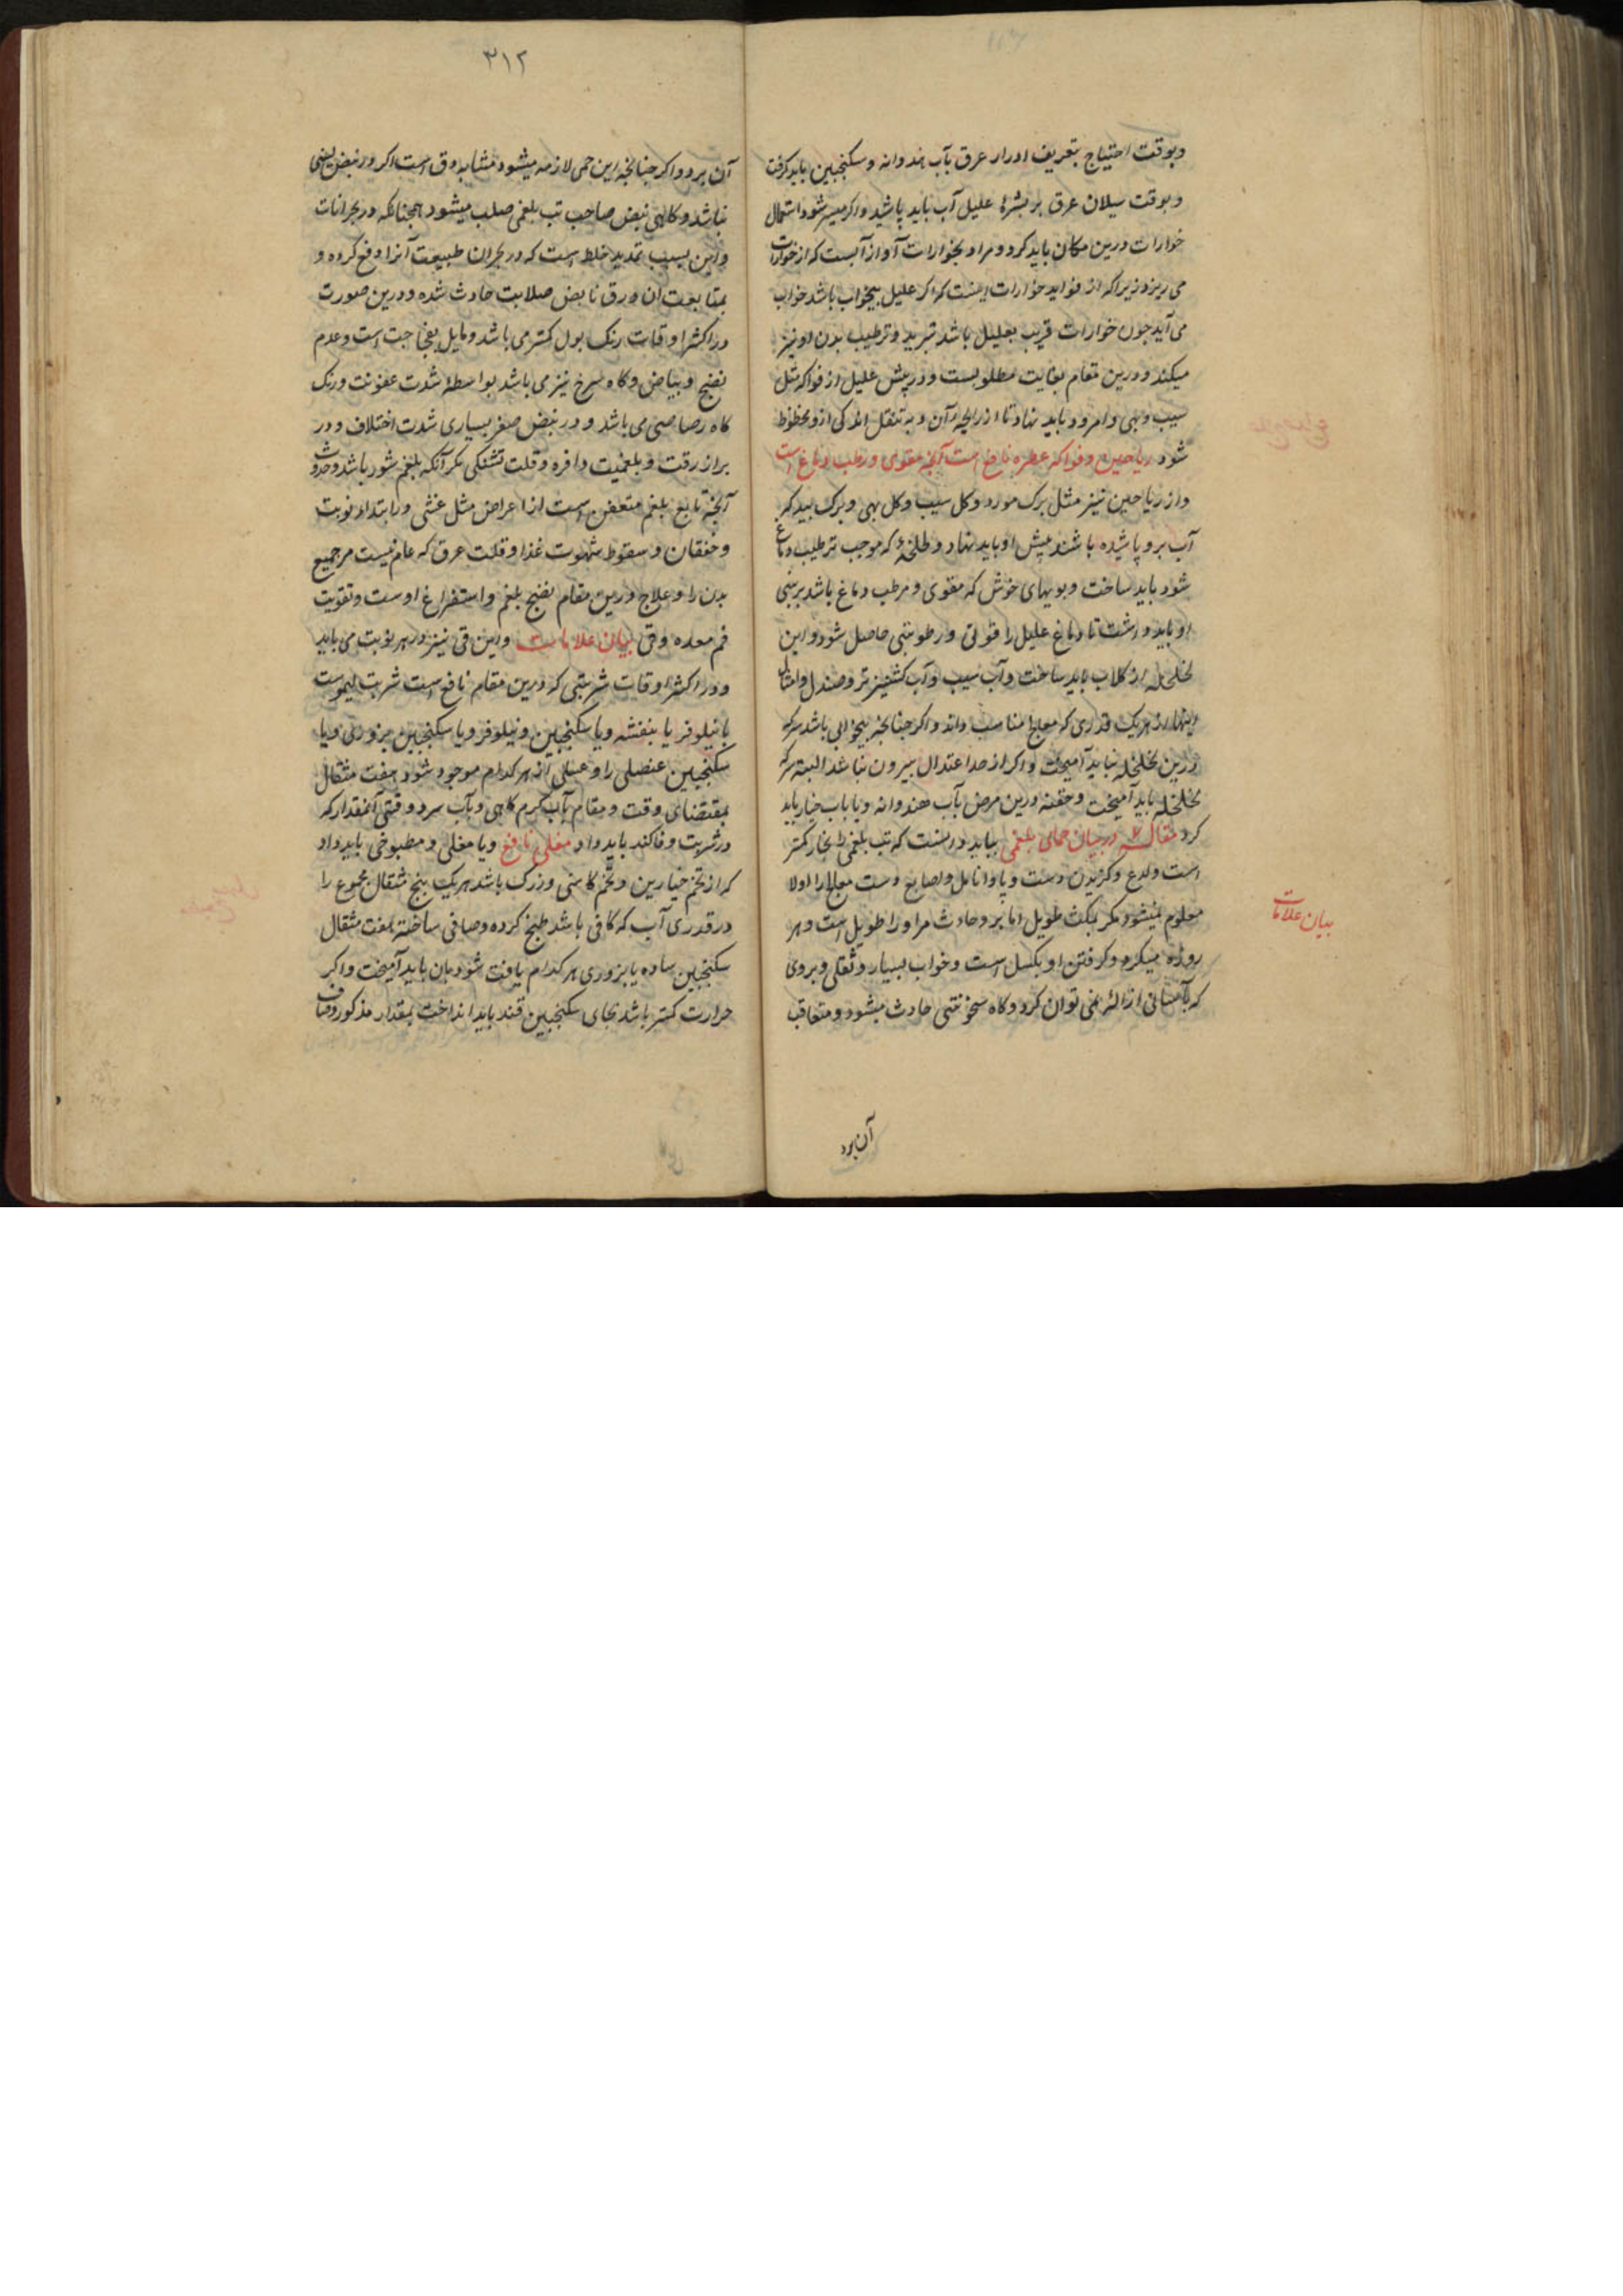 وبوقت احتیاج بتعریف ادرار عرق بآب هندوانه وسکنجبین باید کرفت
وبوقت سیلان عرق بر بشرۀ علیل آب باید پاشید واکر میسر شود استعمال
خوارات درین مکان باید کرد ومراد بخوارات آواز آبست که از خوارات
می ریزد زیرا که از فواید خوارات اینست که اکر علیل بیخواب باشد خواب
می آید چون خوارات قریب بعلیل باشد تبرید وترطیب بدن او نیز
میکند ودرین مقام بغایت مطلوبست ودر پیش علیل از فواکه مثل
سیب وبهی وامرود باید نهاد تا از رایحۀ آن وبه تنقل اندکی ازو محظوظ
شود ریاحین وفواکه عطره نافع است آنچه مقوی ورطب دماغ است
واز ریاحین نیز مثل برک مورد وکل سیب وکل بهی وبرک بید که
آب برو پاشیده باشند پیش او باید نهاد و که موجب ترطیب دماغ
شود باید ساخت وبویهای خوش که مقوی ومرطب دماغ باشد بر بینی
او باید داشت تا دماغ علیل را قوتی ورطوبتی حاصل شود واین
لخلخله از کلاب باید ساخت وآب سیب وآب کشنیز تر وصندل وامثال
اینها از هریک قدری که معالج مناسب داند واکر چنانچه بیخوابی باشد سرکه
درین لخلخله نباید آمیخت واکر از حد اعتدال بیرون نباشد البته سرکه
لخلخله باید آمیخت وحقنه درین مرض بآب هندوانه ویا بآب خیار باید
کرد مقاله در بیان حمای بلغمی بباید دانست که تب بلغمی را بخار کمتر
است ولدع وکزیدن دست وپا وانامل واصابع دست معالج را اولا
معلوم نمیشود مکر بمکث طویل اما برد حادث مر او را طویل است وهر
روزه میکرد وکرفتن او بکسل است وخواب بسیار وثقلی وبردی
که بآسانی ازالۀ نمی توان کرد وکاه سخونتی حادث میشود ومتعاقب
بیان علامات
آن برد
۳۱۲
آن برد واکر چنانچه این حمی لازمه میشود مشابه دق است اکر در نبض لینی
نباشد وکاهی نبض صاحب تب بلغمی صلب میشود همچنانکه در بحرانات
واین بسبب تمدید خلط است که در بحران طبیعت آنرا دفع کرده و
بمتابعت ان ورق نابض صلابت حادث شده ودرین صورت
در اکثر اوقات رنک بول کمتر می باشد ومایل بفجاجت است وعدم
نضج وبیاض وکاه سرخ نیز می باشد بواسطۀ شدت عفونت ورنک
کاه رصاصی می باشد ودر نبض صغر بسیاری شدت اختلاف ودر
براز رقت وبلغمیت وافره وقلت تشنکی مکر آنکه بلغم شور باشد وحدوث
آنچه تابع بلغم متعفن است از اعراض مثل غشی در ابتداء نوبت
وخفقان وسقوط شهوت غذا وقلت عرق که عام نیست مر جمیع
بدن را وعلاج درین مقام نضج بلغم واستفراغ اوست وتقویت
فم معده وقی بیان علامات واین قی نیز در هر نوبت می باید
ودر اکثر اوقات شربتی که درین مقام نافع است شربت لیموست
با نیلوفر یا بنفشه ویا سکنجبین ونیلوفر ویا سکنجبین بزوری ویا
سکنجبین عنصلی را وعسلی از هر کدام موجود شود هفت مثقال
بمقتضای وقت ومقام بآب کرم کاهی وبآب سرد وقتی آنمقدار که
در شربت وفا کند باید داد مغلی نافع ویا مغلی ومطبوخی باید داد
که از تخم خیارین وتخم کاسنی وزرک باشد هریک پنج مثقال مجموع را
در قدری آب که کافی باشد طبخ کرده وصافی ساخته هفت مثقال
سکنجبین ساده یا بزوری هر کدام یافت شود بان باید آمیخت واکر
حرارت کمتر باشد بجای سکنجبین قند باید انداخت بمقدار مذکور وصاف